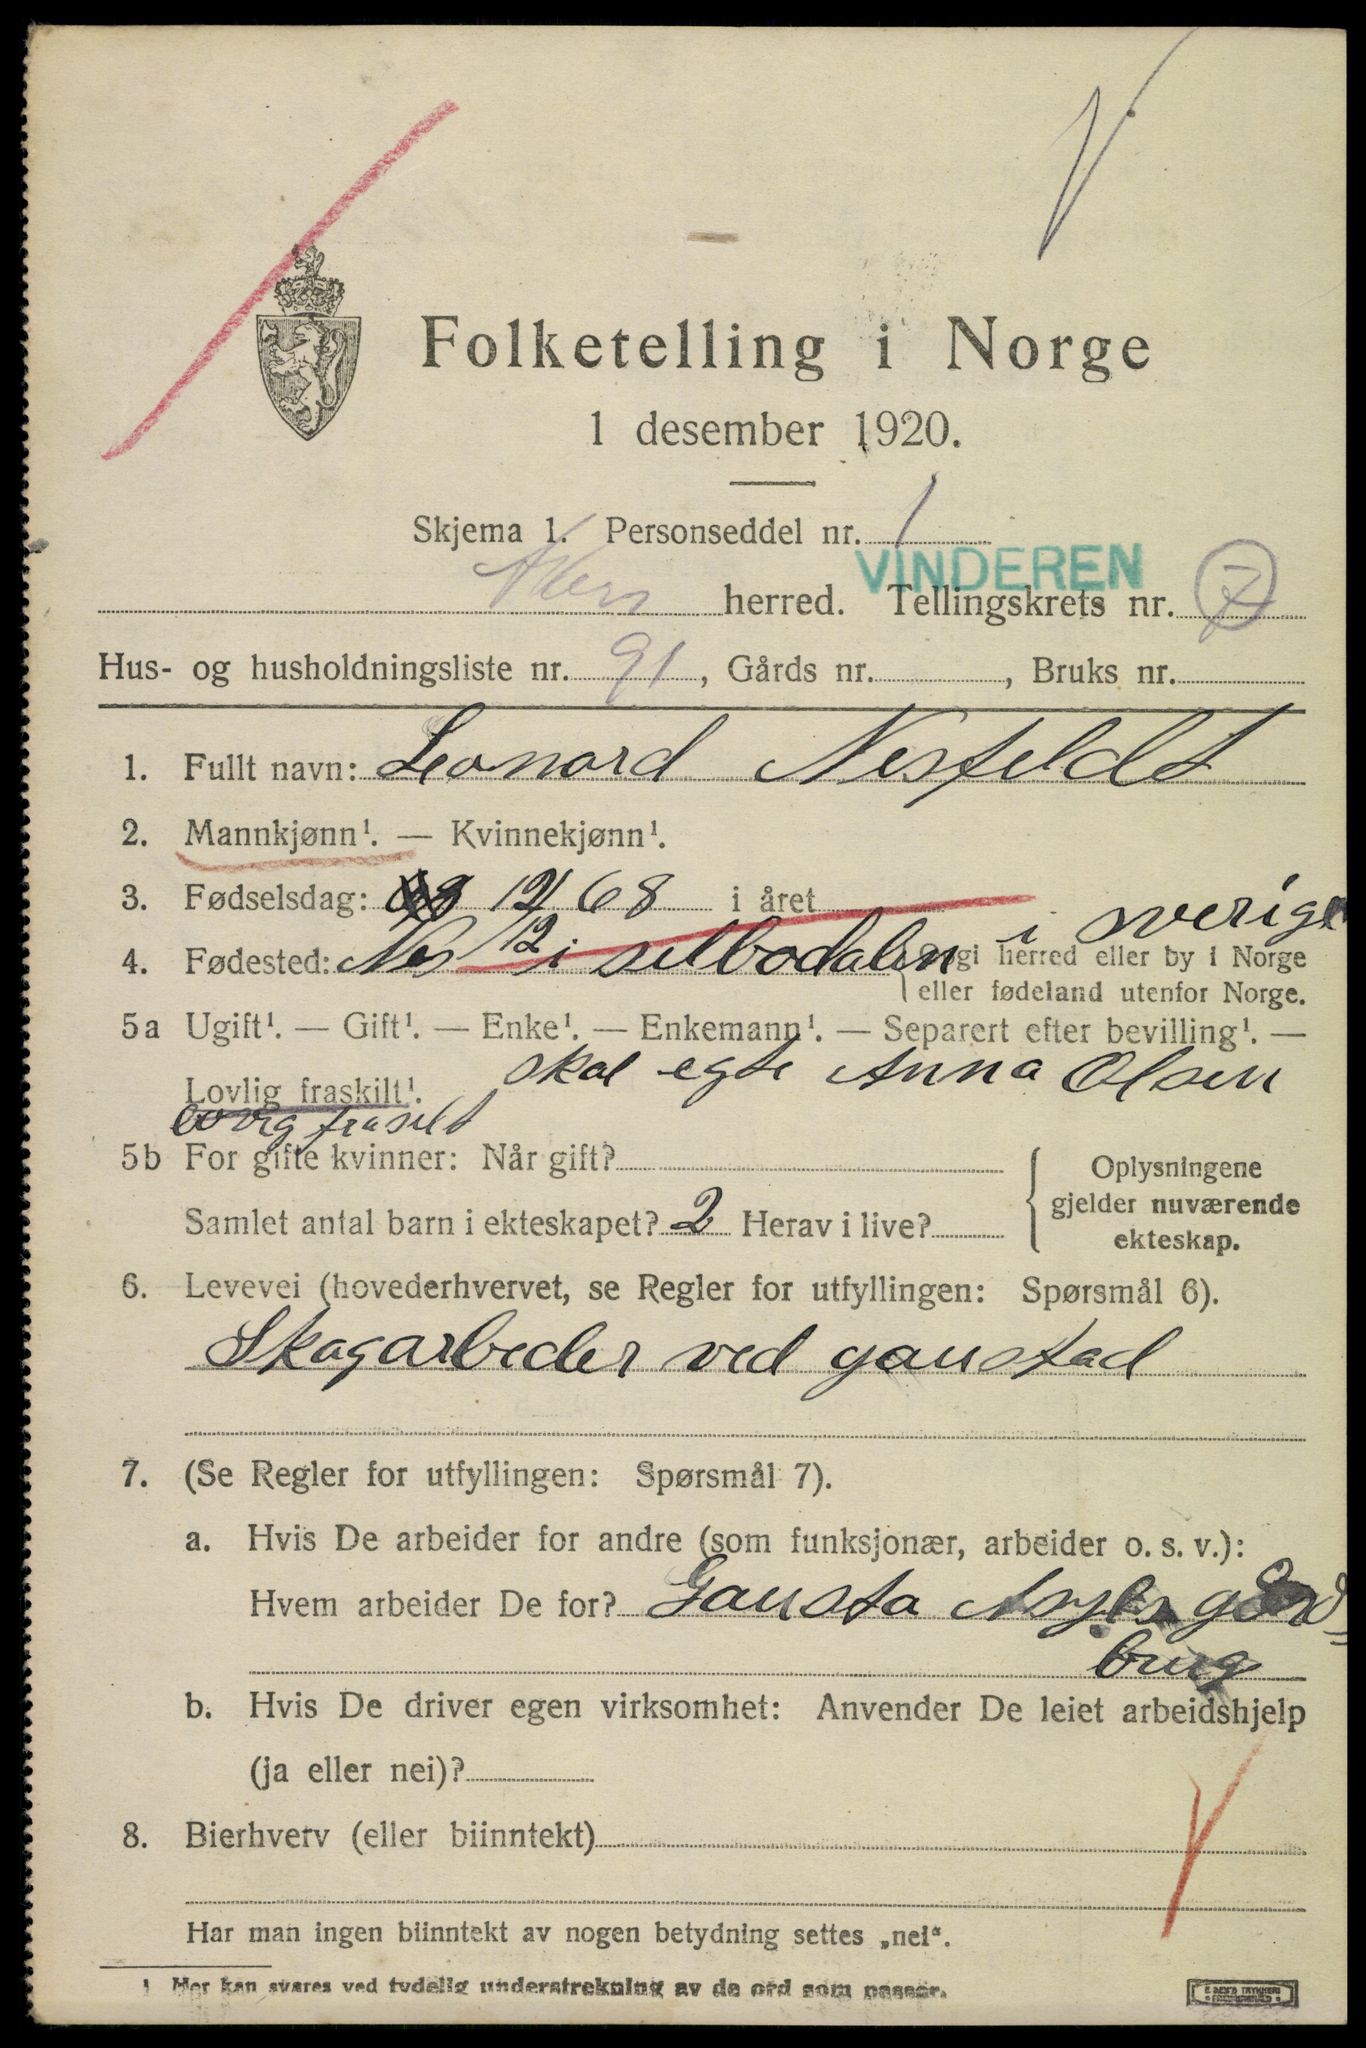 Folketelling i Norge
1 desember 1920.
Skjema 1. Personseddel nr. 1
VINDEREN
Akers herred. Tellingskrets nr. 7
Hus- og husholdningsliste nr. 91, Gårds nr. , Bruks nr.
1. Fullt navn: Leonard Nesfeldt
2. Mannkjønn¹. — Kvinnekjønn¹.
3. Fødselsdag: 12/12 68 i året
4. Fødested: Nes i selbodalen i sverige
Opgi herred eller by i Norge
eller fødeland utenfor Norge.
5a Ugift¹. — Gift¹. — Enke¹. — Enkemann¹. — Separert efter bevilling¹. —
Lovlig fraskilt¹. skal egte Anna Olsen
lovlig fraskilt
5b For gifte kvinner: Når gift?
Samlet antal barn i ekteskapet? 2 Herav i live?
Oplysningene
gjelder nuværende
ekteskap.
6. Levevei (hovederhvervet, se Regler for utfyllingen: Spørsmål 6).
Skogarbeder ved gaustad
7. (Se Regler for utfyllingen: Spørsmål 7).
a. Hvis De arbeider for andre (som funksjonær, arbeider o. s. v.):
Hvem arbeider De for? Gausta Asyls gård
brug
b. Hvis De driver egen virksomhet: Anvender De leiet arbeidshjelp
(ja eller nei)?
8. Bierhverv (eller biinntekt)
Har man ingen biinntekt av nogen betydning settes „nei“.
¹ Her kan svares ved tydelig understrekning av de ord som passer.